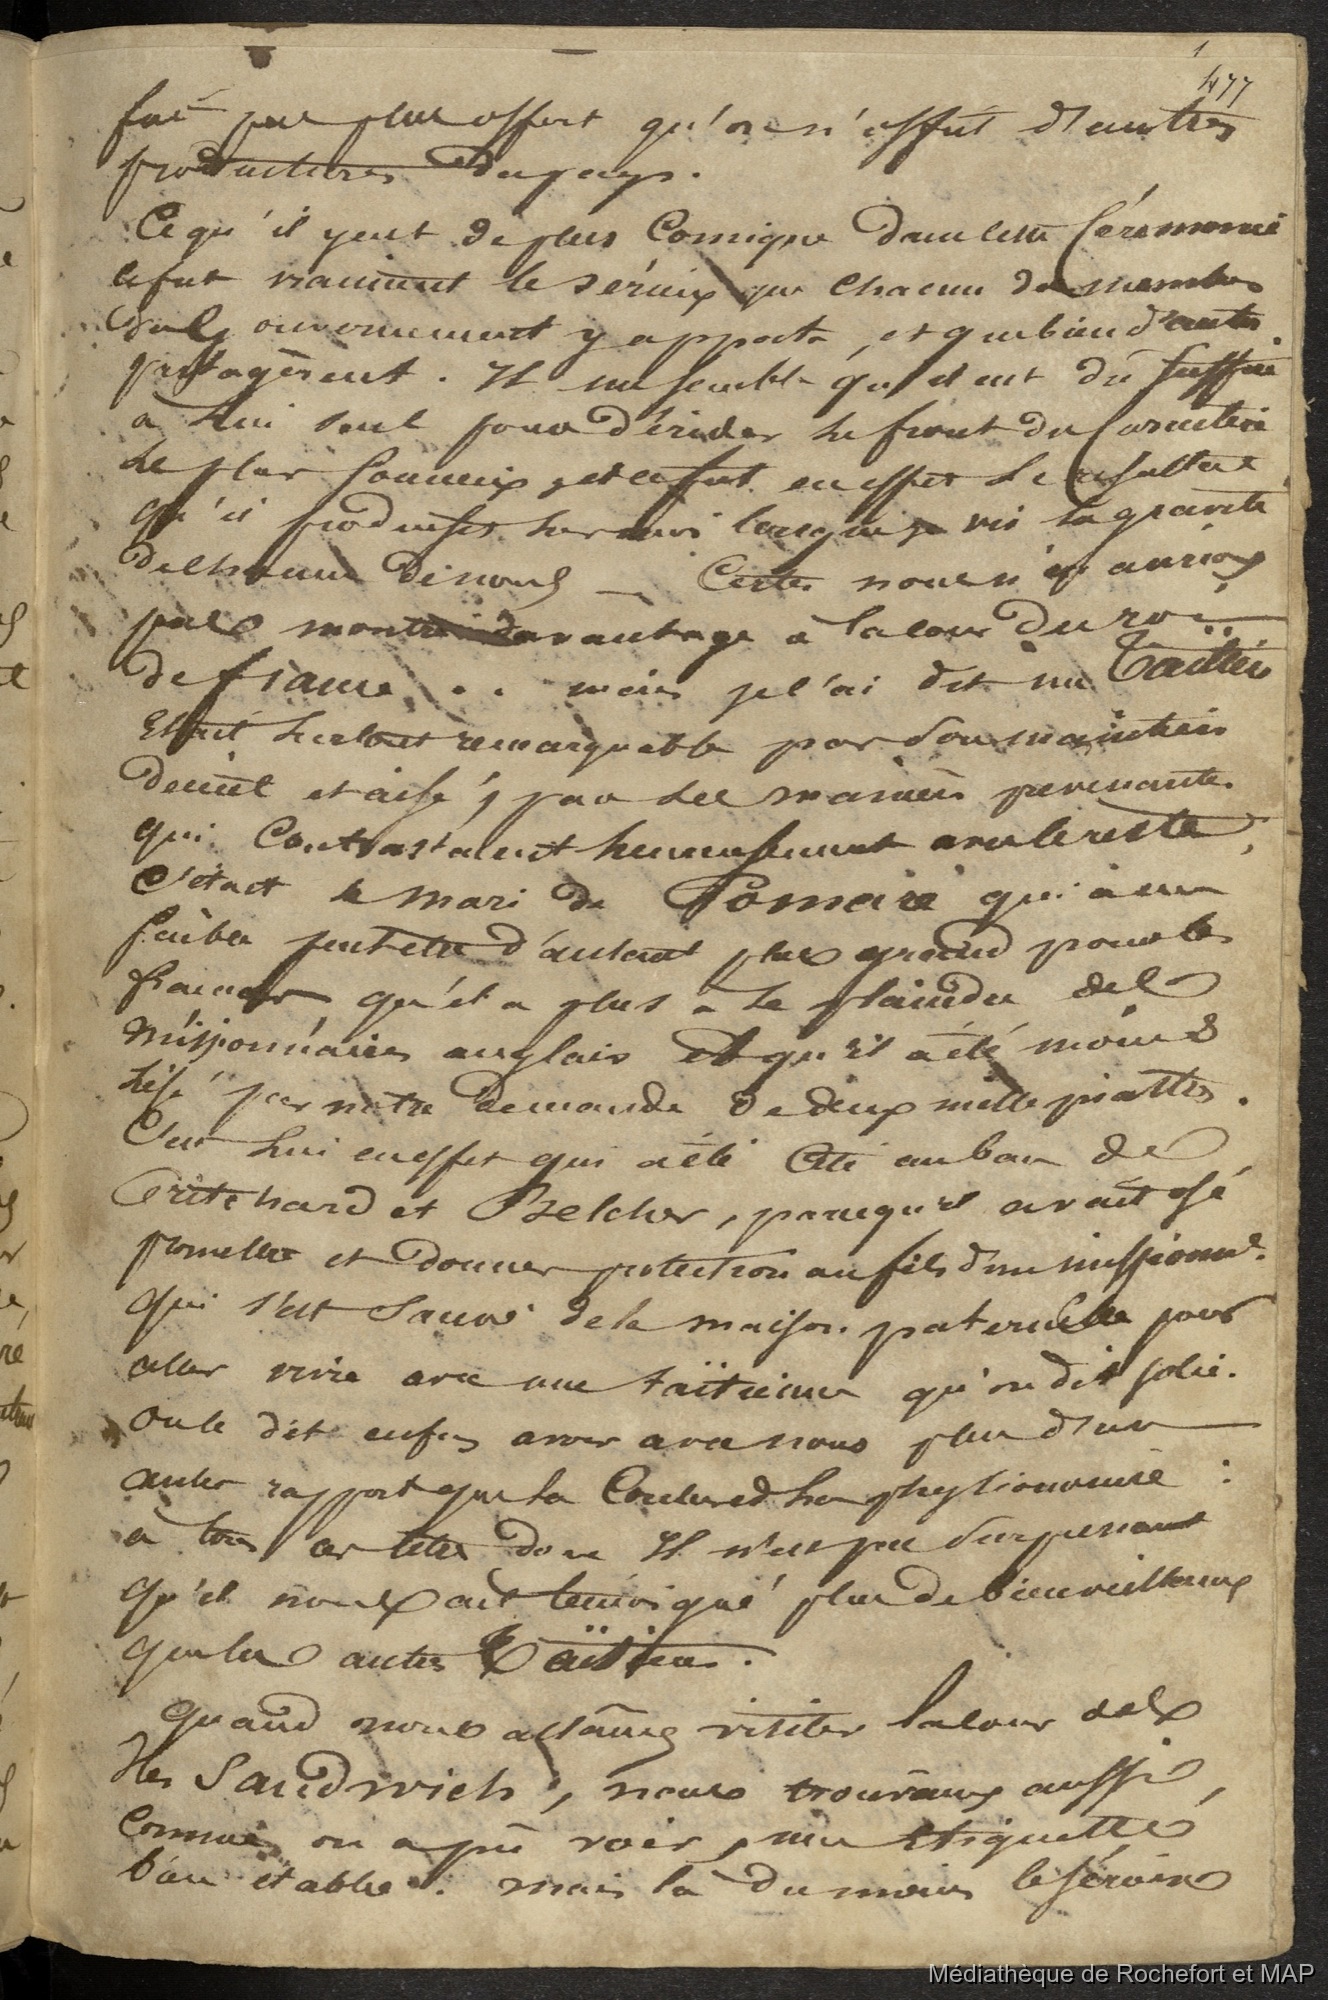 1
477
fut pas plus offert qu'on n'offrit d'autres
productions du pays.
Ce qu'il y eut de plus Comique dans cette Cérémonie
ce fut vraiment le sérieux que chacun des membres
du Gouvernement y apporta, et que bien d'autres
partagèrent. Il me semble qu'il eut dû suffire
à lui seul pour dérider le front du Caractère
le plus soucieux, et ce fut en effet le résultat
qu'il produisit sur moi lorsque je vis la gravité
de chacun de nous _ Certes nous n'en aurions
pas montré davantage à la cour du roi
de france . . mais je l'ai dit un Taïtien
était surtout remarquable par son maintien
décent et aisé, par ses manières prévenantes
qui Contrastaient heureusement avec le reste,
C'était le mari de Pomaré qui a un
faible peut etre d'autant plus grand pour les
francais qu'il a plus à se plaindre des
missionnaires anglais et qu'il a été moins
lésé par notre demande de deux mille piastres.
C'est lui en effet qui a été Cité au ban de
Pritchard et Belcher, parcequ'il avait osé
promettre et donner protection au fils d'un missionre.
qui s'est sauvé de la maison paternelle pour
aller vivre avec une taïtienne qu'on dit jolie.
on le dit enfin avoir avec nous plus d'un
autre rapport que la Couleur et la physionomie :
à tous ces titres donc Il n'est pas surprenant
qu'il nous ait témoigné plus de bienveillance
que les autres Taïtiens.
quand nous allâmes visiter la cour des
Iles Sandwich, nous trouvâmes aussi,
comme on a pu voir, une étiquette
bien établie. mais là du moins le sérieux
Médiathèque de Rochefort et MAP